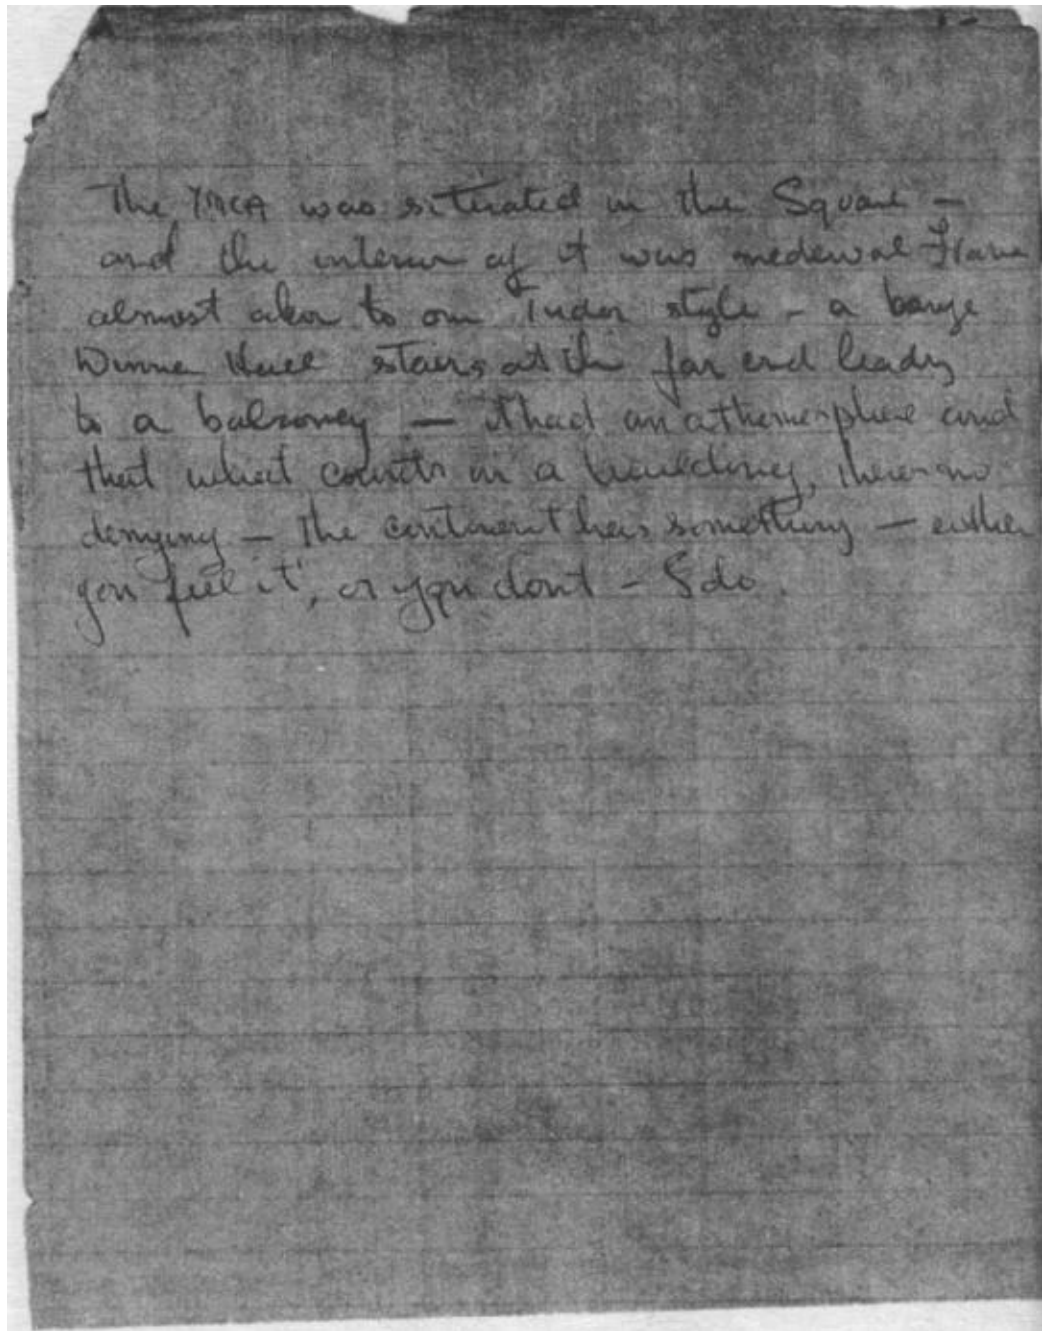 The YMCA was situated in the Square –
and the interior of it was medieval
almost akin to our Tudor style – a large
Hall stairs at the far end leading
to a balconey — it had an athemosphere and
that what counts in a building, theres no
denying – The continent has something – either
you feel it, or you dont – I do.